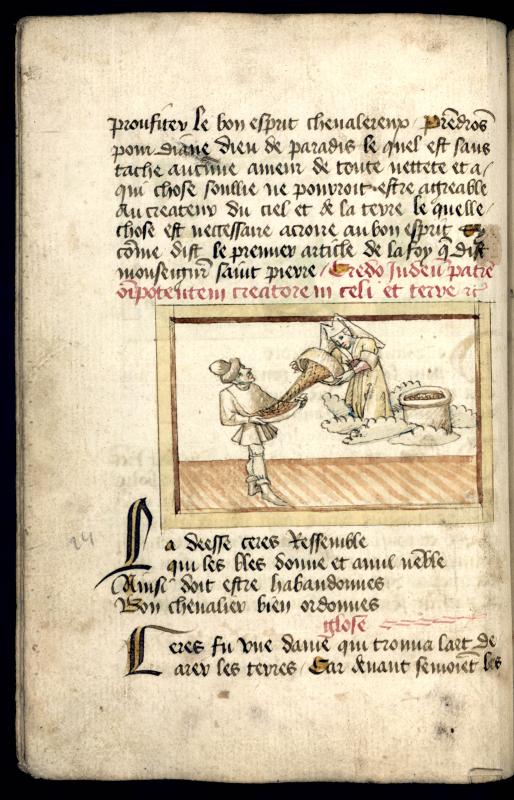 proufiter le bon esprit chevalereux / Prēdrōs
pour diane dieu de paradis le quel est sans
tache aucune ameur de toute nettete et a /
qui chose soullie ne pourroit estre aggreable
Au createur du ciel et de la terre le quelle /
chose est necessaire acroire au bon esprit
cōme dist le premier article de la foy q̄ dist
monseigneur saint pierre / Credo in deū patrē
oīpotentem creatorem celi et terre ꝛcͣ
24
La deesse ceres Ressemble
qui les bles donne et a nul nēble
Ainsi doit estre habandonnes
Bon chevalier bien ordonnes
glose
Ceres fu vne dame qui trouua lart de
arer les terres / Car deuant semoiēt les